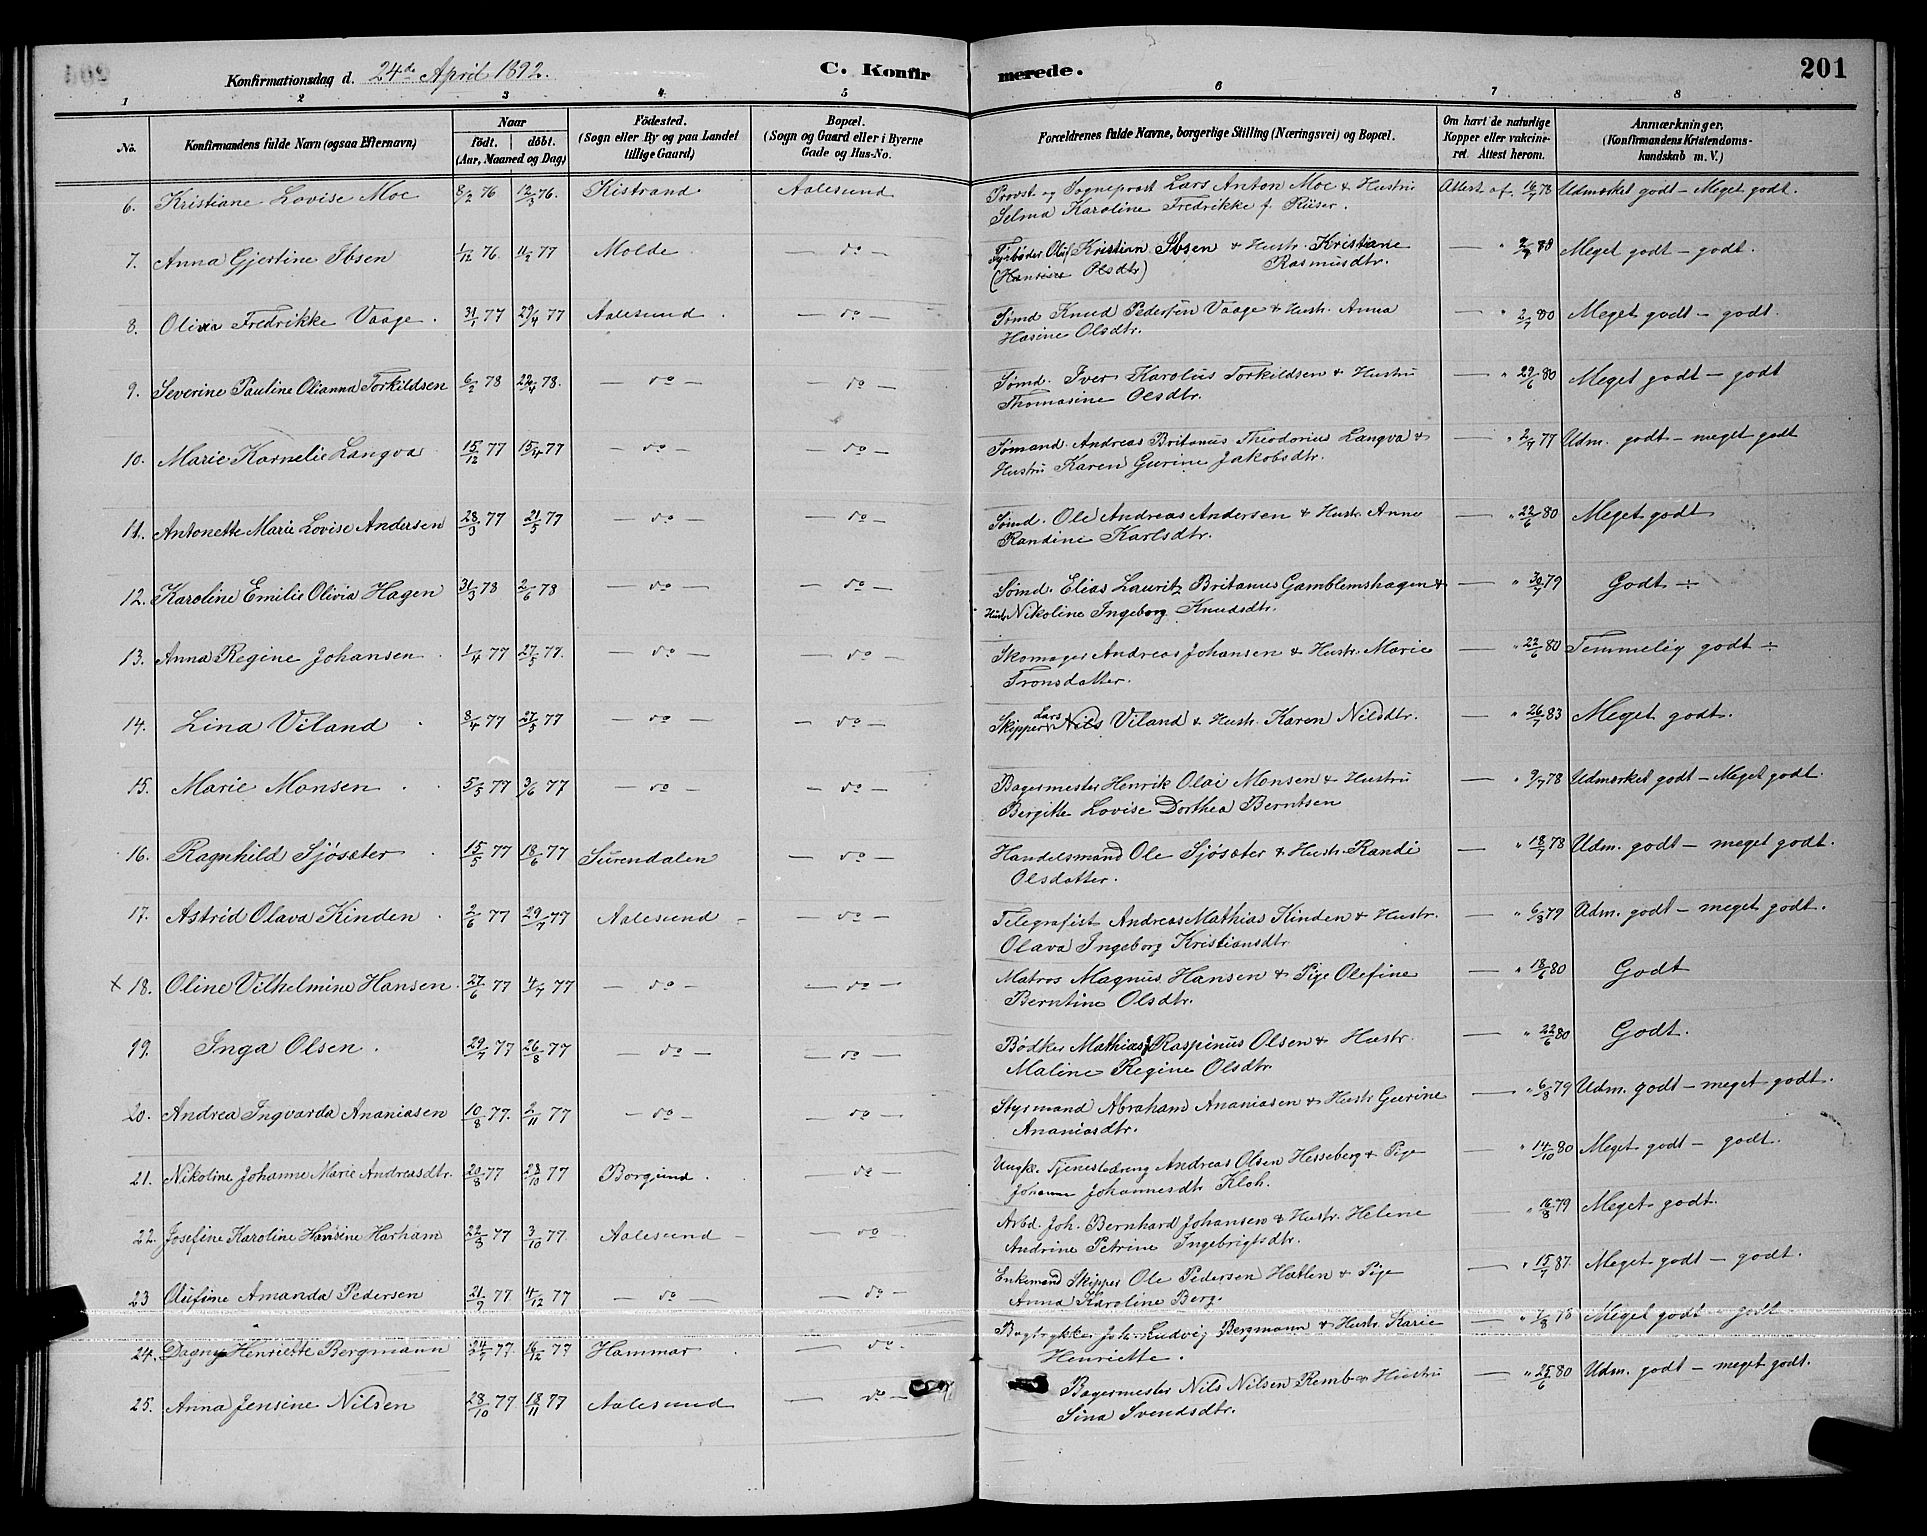 Konfirmationsdag d. 24de April 1892. C. Konfirmerede. 201
1 2 3 4 5 6 7 8
No. Konfirmandens fulde Navn (ogsaa Efternavn) Naar födt. döbt. (Aar, Maaned og Dag) Födested. (Sogn eller By og paa Landet tillige Gaard) Bopæl. (Sogn og Gaard eller i Byerne Gade og Hus-No. Forældrenes fulde Navne, borgerlige Stilling (Næringsvei) og Bopæl. Om havt de naturlige Kopper eller vakcineret. Attest herom. Anmærkninger. (Konfirmandens Kristendomskundskab m. V.)
6. Kristiane Lovise Moe 8/2 76 12/3 76. Kistrand Aalesund Provst og Sogneprest Lars Anton Moe & Hustru Attest af 16/7 78 Udmærket godt - Meget godt.
Selma Karoline Fredrikke f. Riiser.
7. Anna Gjertine Ibsen 1/12 76. 11/2 77 Molde — do — Fyrbøder Oluf Kristian Ibsen & Hustr. Kristiane Rasmusdtr. — " 2/7 80 Meget godt - godt.
(Hansine Olsdtr)
8. Olivia Fredrikke Vaage. 31/1 77 29/4 77 Aalesund — do — Sømd Knud Pedersen Vaage & Hustr. Anna — " 2/7 80 Meget godt - godt.
Hasine Olsdtr.
9. Severine Pauline Olianna Torkildsen 6/2 78 22/4 78. — do — — do — Sømd. Iver Karolus Torkildsen & Hustru — " 29/6 80 Meget godt - godt
Thomasine Olsdtr.
10. Marie Kornelie Langva 15/12 77 15/4 77 — do — — do — Sømand Andreas Britanus Theodorius Langva & — " 2/7 77 Udm. godt - meget godt
Hustru Karen Gurine Jakobsdtr.
11. Antonette Marie Lovise Andersen 28/3 77 21/5 77 — do — — do — Sømd. Ole Andreas Andersen & Hustr. Anne — " 22/6 80 Meget godt
Randine Karlsdtr.
12. Karoline Emilie Olivia Hagen 31/3 78 2/6 78 — do — — do — Sømd. Elias Lauritz Britanus Gamblemshagen & — " 30/7 79 Godt ÷
Hustr Nikoline Ingeborg Knudsdtr.
13. Anna Regine Johansen 1/4 77 27/5 77. — do — — do — Skomager Andreas Johansen & Hustr. Marie — " 22/6 80 Temmelig godt ÷
Tronsdatter.
14. Lina Viland 8/4 77 27/5 77 — do — — do — Skipper Lars Nils Viland & Hust. Karen Nilsdtr. — " 26/7 83 Meget godt.
15. Marie Monsen 5/5 77 3/6 77 — do — — do — Bagermester Henrik Olai Monsen & Hustru — " 9/7 78 Udmærket godt - Meget godt.
Bergitte Lovise Dorthea Berntsen
16. Ragnhild Sjösæter 15/5 77 18/6 77 Surendalen — do — Handelsmand Ole Sjösæter & Hustr. Randi — " 18/7 78 Udm. godt - meget godt.
Olsdatter.
17. Astrid Olava Kinden 2/6 77 29/7 77 Aalesund — do — Telegrafist Andreas Mathias Kinden & Hustr. " 6/8 79 Udm. godt - meget godt.
Olava Ingeborg Kristiansdtr
x 18. Oline Vilhelmine Hansen 27/6 77 4/7 77 — do — — do — Matros Magnus Hansen & Pige Olefine — " 18/6 80 Godt
Berntine Olsdtr.
19. Inga Olsen. 29/7 77 26/8 77 — do — — do — Bödker Mathias Raspinus Olsen & Hustr. — " 22/6 80 Godt.
Maline Regine Olsdtr.
20. Andrea Ingvarda Ananiasen 10/8 77. 2/11 77 — do — — do — Styrmand Abraham Ananiasen & Hustr Gurine — " 6/8 79 Udm. godt - meget godt.
Ananiasdtr.
21. Nikoline Johanne Marie Andreasdtr. 20/8 77 28/10 77 Borgund. — do — Ungk. Tjenestedreng Andreas Olsen Hesseberg & Pige " 14/10 80 Meget godt - godt.
Johanne Johannesdtr Kloh.
22. Josefine Karoline Hansine Harham 22/8 77 3/10 77. Aalesund — do — Arbd. Joh. Bernhard Johansen & Hustr. Helene — " 16/8 79 Meget godt.
Andrine Petrine Ingebrigtsdtr.
23 Olufine Amanda Pedersen 21/9 77 4/12 77 — do — — do — Enkemand Skipper Ole Pedersen Hatlen & Pige — " 15/7 87. Meget godt - godt.
Anna Karoline Berg.
24. Dagny Henriette Bergmann 24/7 77. 16/12 77 Hammar — do — Bogtrykker Joh. Ludvig Bergmann & Hustr. Karie — " 7/8 78 Meget godt - godt
Henriette.
25. Anna Jensine Nilsen 28/10 77 18/11 77 Aalesund — do — Bagermester Nils Nilsen Remb & Hustru — " 25/6 80 Udm. godt - meget godt.
Sina Svendsdtr.